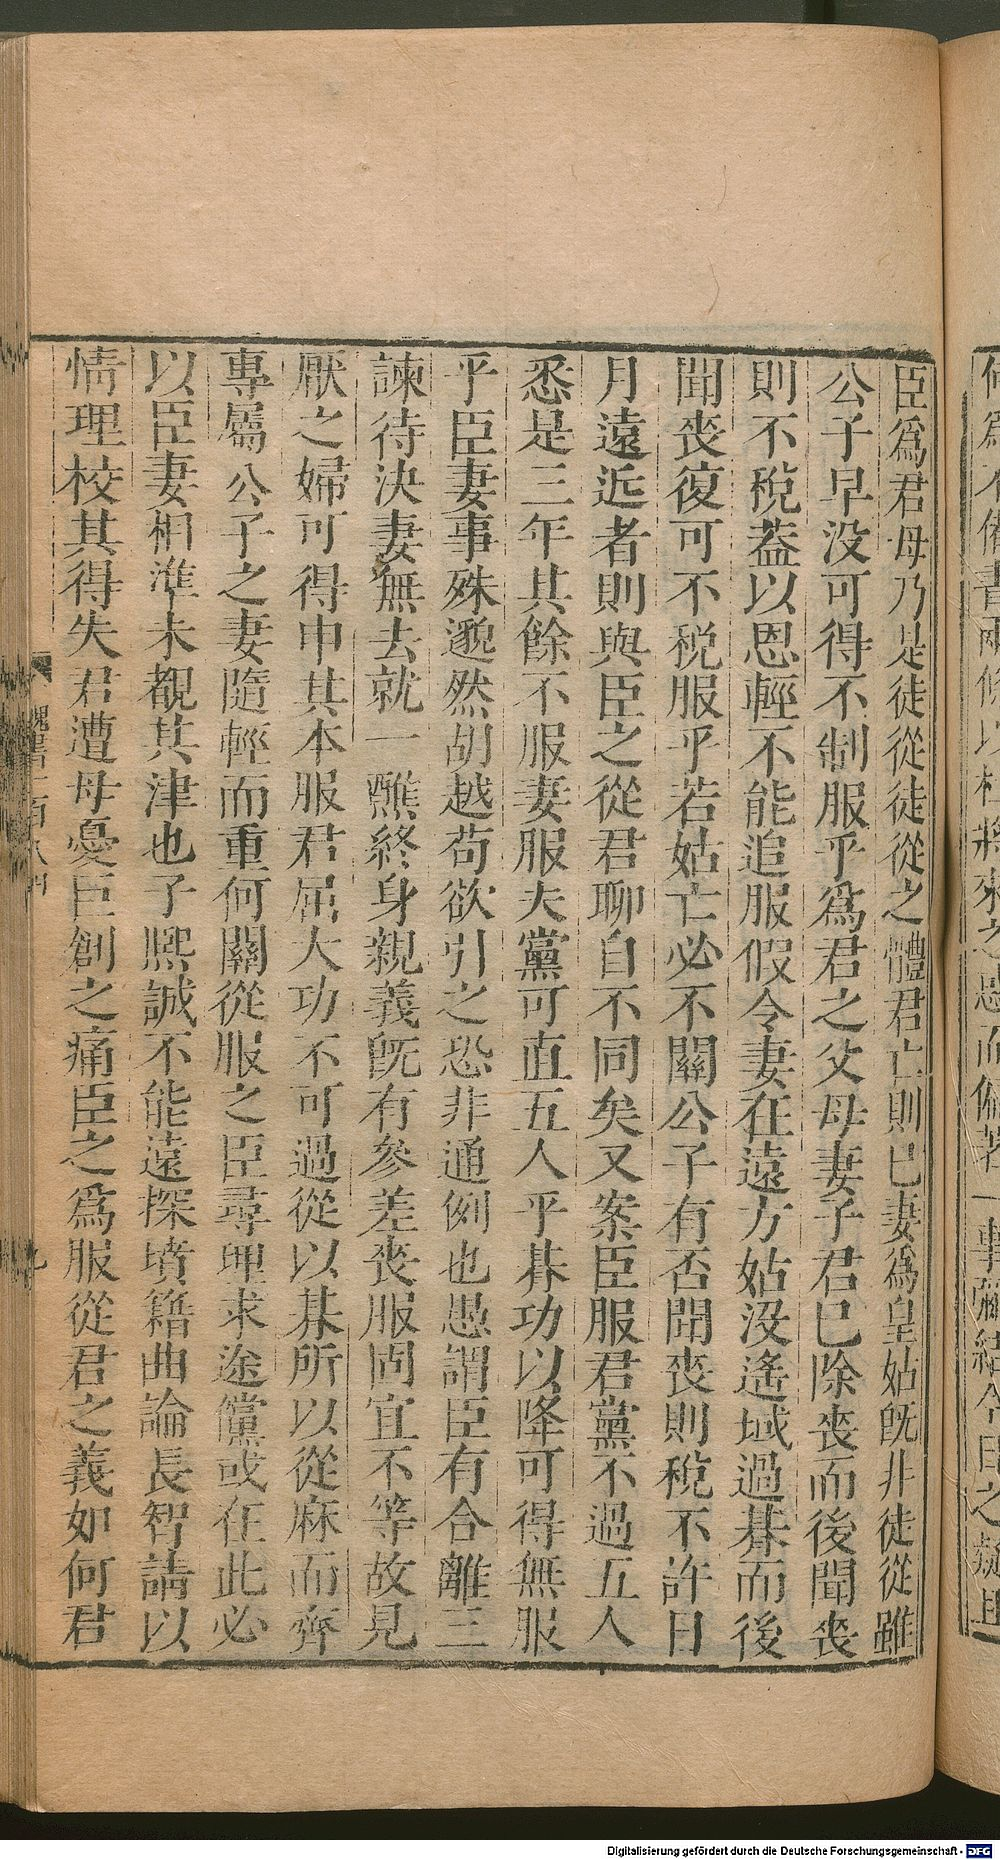 臣爲君母乃是徒從徒從之體君亡則已妻爲皇姑旣非徒從雖
公子早没可得不制服乎爲君之父母妻子君已除喪而後聞喪
則不稅蓋以恩輕不能追服假令妻在遠方姑没遙域過朞而後
聞喪復可不稅服乎若姑亡必不關公子有否聞喪則稅不許日
月遠近者則與臣之從君聊自不同矣又案臣服君黨不過五人
悉是三年其餘不服妻服夫黨可直五人乎朞功以降可得無服
乎臣妻事殊邈然胡越苟欲引之恐非通例也愚謂臣有合離三
諫待決妻無去就一醮終身親義旣有參差喪服固宜不等故見
厭之婦可得申其本服君屈大功不可過從以朞所以從麻而齊
專屬公子之妻隨輕而重何關從服之臣尋理求途儻或在此必
以臣妻相準未覩其津也子熙誠不能遠探墳籍曲論長智請以
情理校其得失君遭母憂臣創之痛臣之爲服從君之義如何君
Digitalisierung gefördert durch die Deutsche Forschungsgemeinschaft - DFG